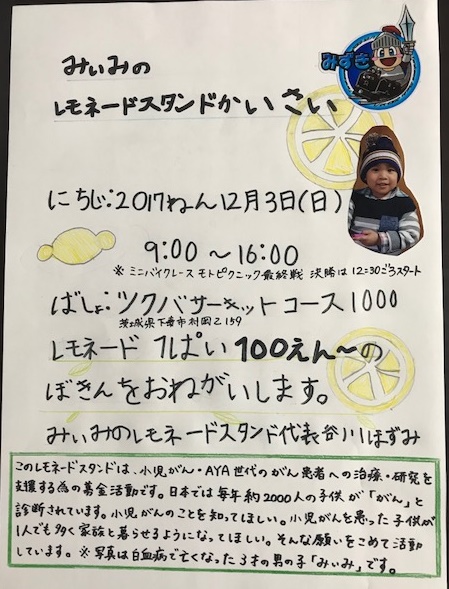 みずき
みぃみの
レモネードスタンドかいさい
にちじ:2017ねん12月3日(日)
9:00〜16:00
※ミニバイクレース モトピクニック最終戦 決勝は12:30ごろスタート
ばしょ:ツクバサーキットコース1000
茨城県下妻市村岡乙159
レモネード 1ぱい 100えん〜の
ぼきんをおねがいします。
みぃみのレモネードスタンド代表谷川ほずみ
このレモネードスタンドは、小児がん・AYA世代のがん患者への治療・研究を
支援する為の募金活動です。日本では毎年約2000人の子供が「がん」と
診断されています。小児がんのことを知ってほしい。小児がんを患った子供が
1人でも多く家族と暮らせるようになってほしい。そんな願いをこめて活動
しています。※写真は白血病で亡くなった3才の男の子「みぃみ」です。